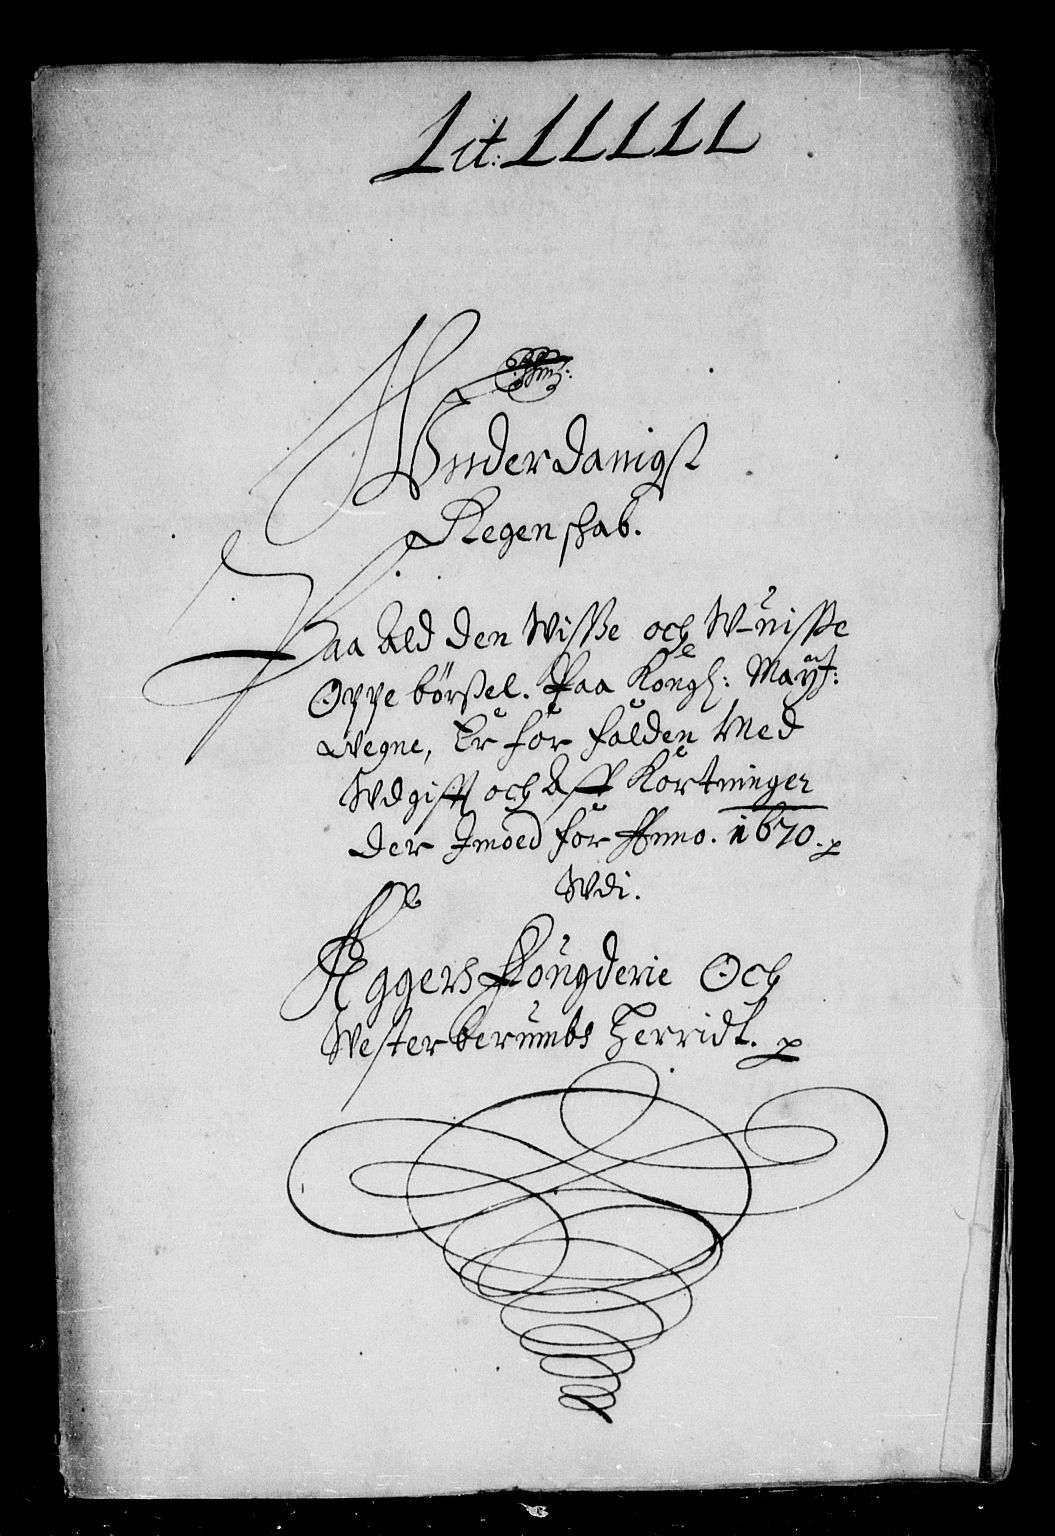 Lit: LLLLL
Vnderdanigst
Regenskab.
Paa ald den Wisße och W-uisße
Oppebörßel. Paa Kongl: Maytt:
Wegne, Er for falden Med
Wdgifft och Aff Kortninger
der Imoed for Anno. 1670.
Wdi.
Aggers Fougderie Och
Westerberumbs Herridt.